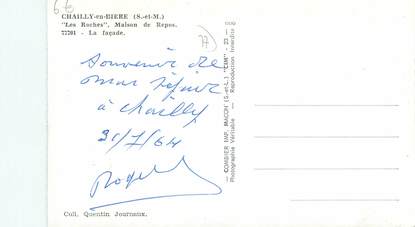 6€
CHAILLY-en-BIERE (S.-et-M.)
"Les Roches", Maison de Repos.
77701 - La façade.
77
Souvenir de
mon séjour
à chailly
31/7/64
Roger
Coll. Quentin Journaux.
— COMBIER IMP. MACON (S.-et-L.) "CIM" —
Photographie Véritable — Reproduction Interdite